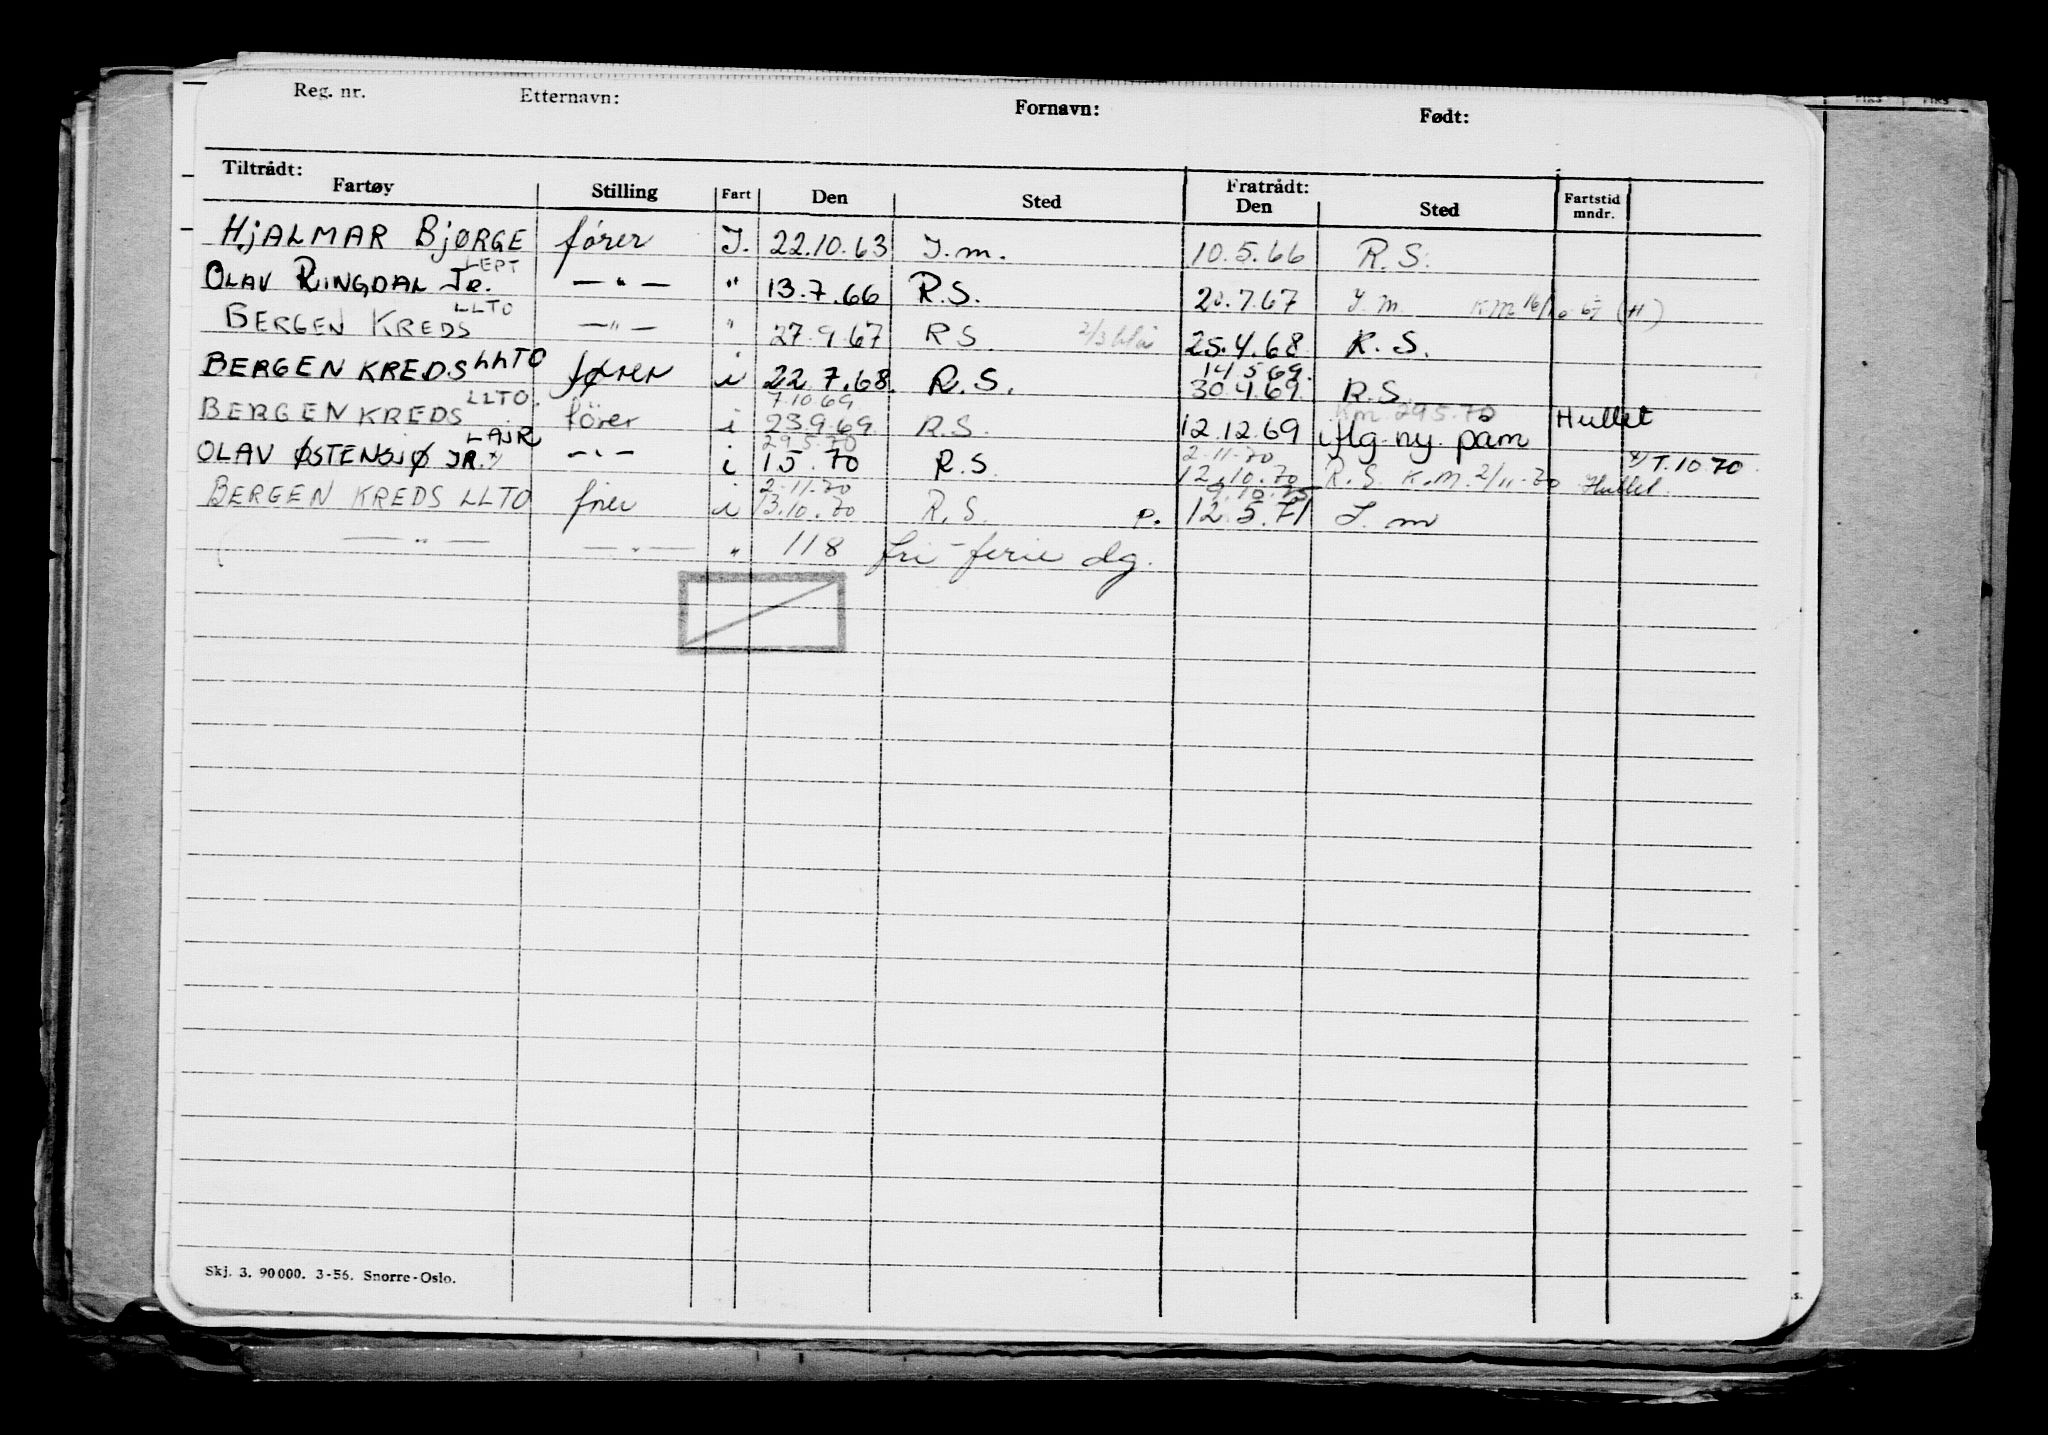 Reg. nr. Etternavn: Fornavn: Født:
Tiltrådt: Fratrådt:
Fartøy Stilling Fart Den Sted Den Sted Fartstid mndr.
HjALMAR BjØRGE fører I. 22.10.63 I.m. 10.5.66 R.S.
LEPT
OLAV RINGDAL JR. — " — " 13.7.66 R.S. 7.67 I.m.
LLTO
BERGEN KREDS — " — " 27.9.67 R.S. 2/3 25.4.68 R.S.
LLTO 14.5.69.
BERGEN KREDS fører i 22.7.68. R.S. 30.4.69. R.S.
LLTO. 7.10.69 Km 29.5.70
BERGEN KREDS fører i 23.9.69. R.S. 12.12.69 iflg. ny. pam Hullet
LAJR 29.5.70 2-11-70
OLAV ØSTENSJØ JR. x) — " — i 1.5.70 R.S. 12.10.70 R.S. K.M. 2/11-70 Hullet. x) T.10 70
2-11-70 9.10.75
BERGEN KREDS LLTO fører i 13.10.70 R.S. P. 12.5.71 I.m
— " — — " — " 118 fri-ferie dg.
Skj. 3. 90000. 3-56. Snorre-Oslo.